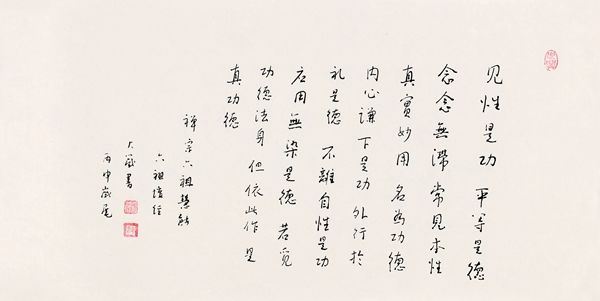 见性是功 平等是德
念念無滯 常見本性
真實妙用 名為功德
内心謙下是功 外行於
礼是德 不離自性是功
应用無染是德 若覓
功德法身 但依此作 是
真功德
禅宗六祖慧能
六祖壇经
書
丙申歲尾